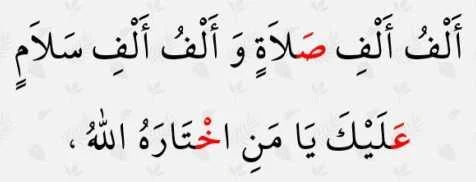 أَلْفُ أَلْفِ صَلاَةٍ وَ أَلْفُ أَلْفِ سَلاَمٍ
عَلَيْكَ يَا مَنِ اخْتَارَهُ اللهُ ،